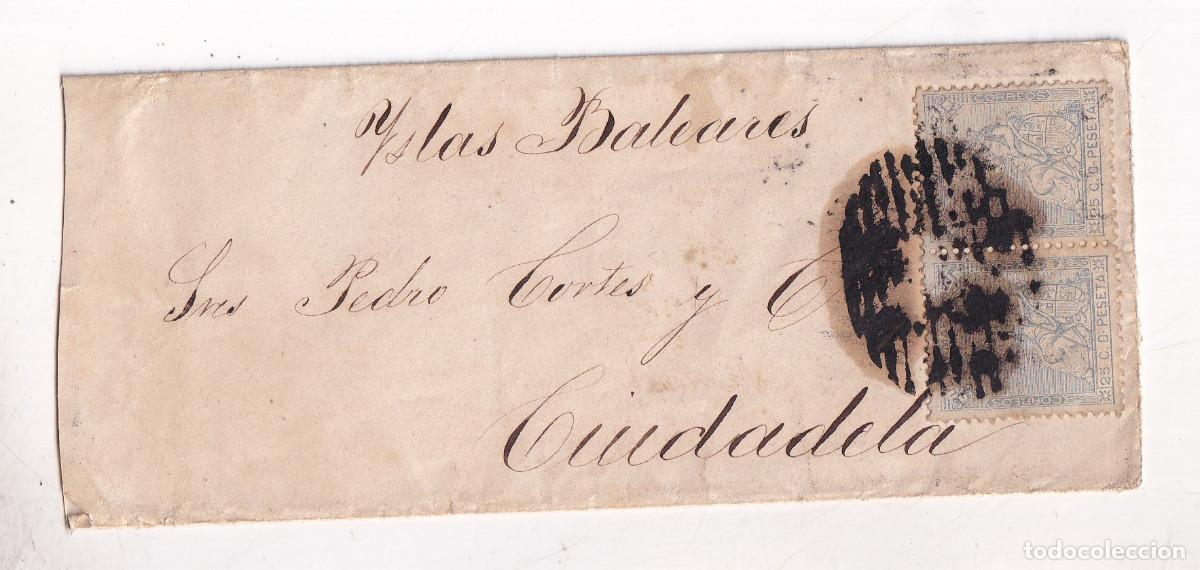 Yslas Baleares
Sres Pedro Cortés y C
Ciudadela
CORREOS
25 C. D. PESETA
CORREOS
25 C. D. PESETA
todocoleccion
todocoleccion.net